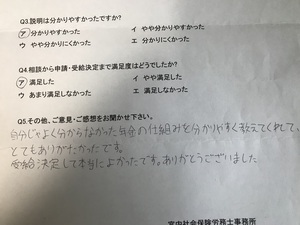 Q3.説明は分かりやすかったですか?
ア 分かりやすかった　イ やや分かりやすかった
ウ やや分かりにくかった　エ 分かりにくかった
Q4.相談から申請・受給決定まで満足度はどうでしたか?
ア 満足した　イ やや満足した
ウ あまり満足しなかった　エ 満足しなかった
Q5.その他、ご意見・ご感想をお聞かせ下さい。
自分じゃよく分からなかった年金の仕組みを分かりやすく教えてくれて、
とてもありがたかったです。
受給決定して本当によかったです。ありがとうございました
宮内社会保険労務士事務所